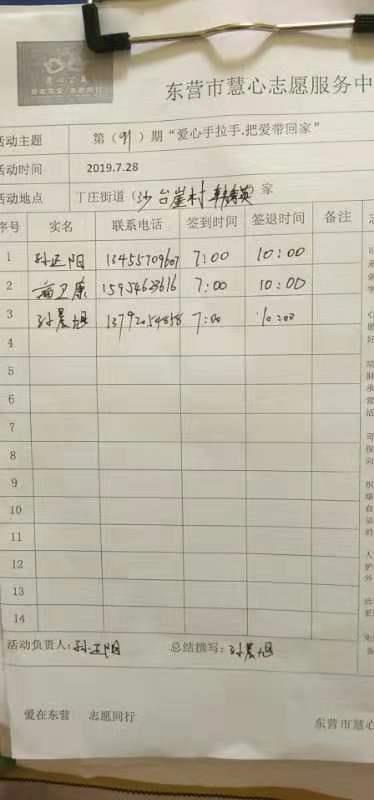 东营市慧心志愿服务中
活动主题 第（91）期“爱心手拉手·把爱带回家”
活动时间 2019.7.28
活动地点 丁庄街道（沙台崖村 家
序号 实名 联系电话 签到时间 签退时间 备注
1 孙正阳 13455709607 7:00 10:00
2 卫康 15954623616 7:00 10:00
3 孙晨旭 13792054858 7:00 10:00
4
5
6
7
8
9
10
11
12
13
14
活动负责人：孙正阳 总结撰写：孙晨旭
爱在东营 志愿同行 东营市慧心